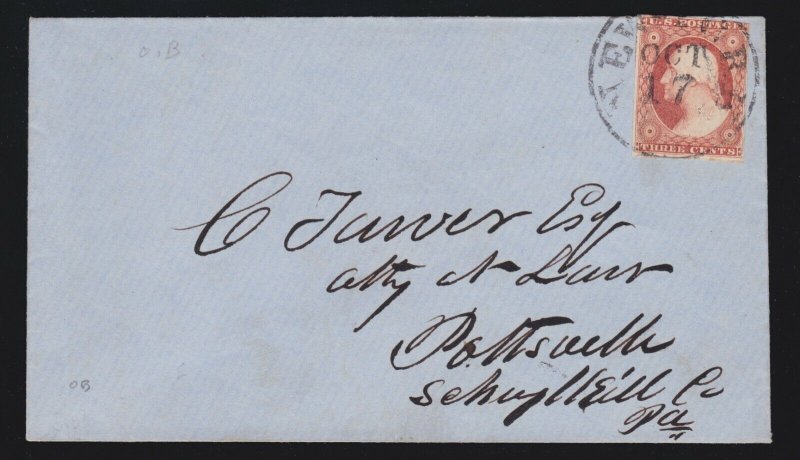 O.B
U.S. POSTAGE
OCT
17
THREE CENTS
C Tower Esq
atty at Law
Pottsville
Schuylkill Co
Pa
OB